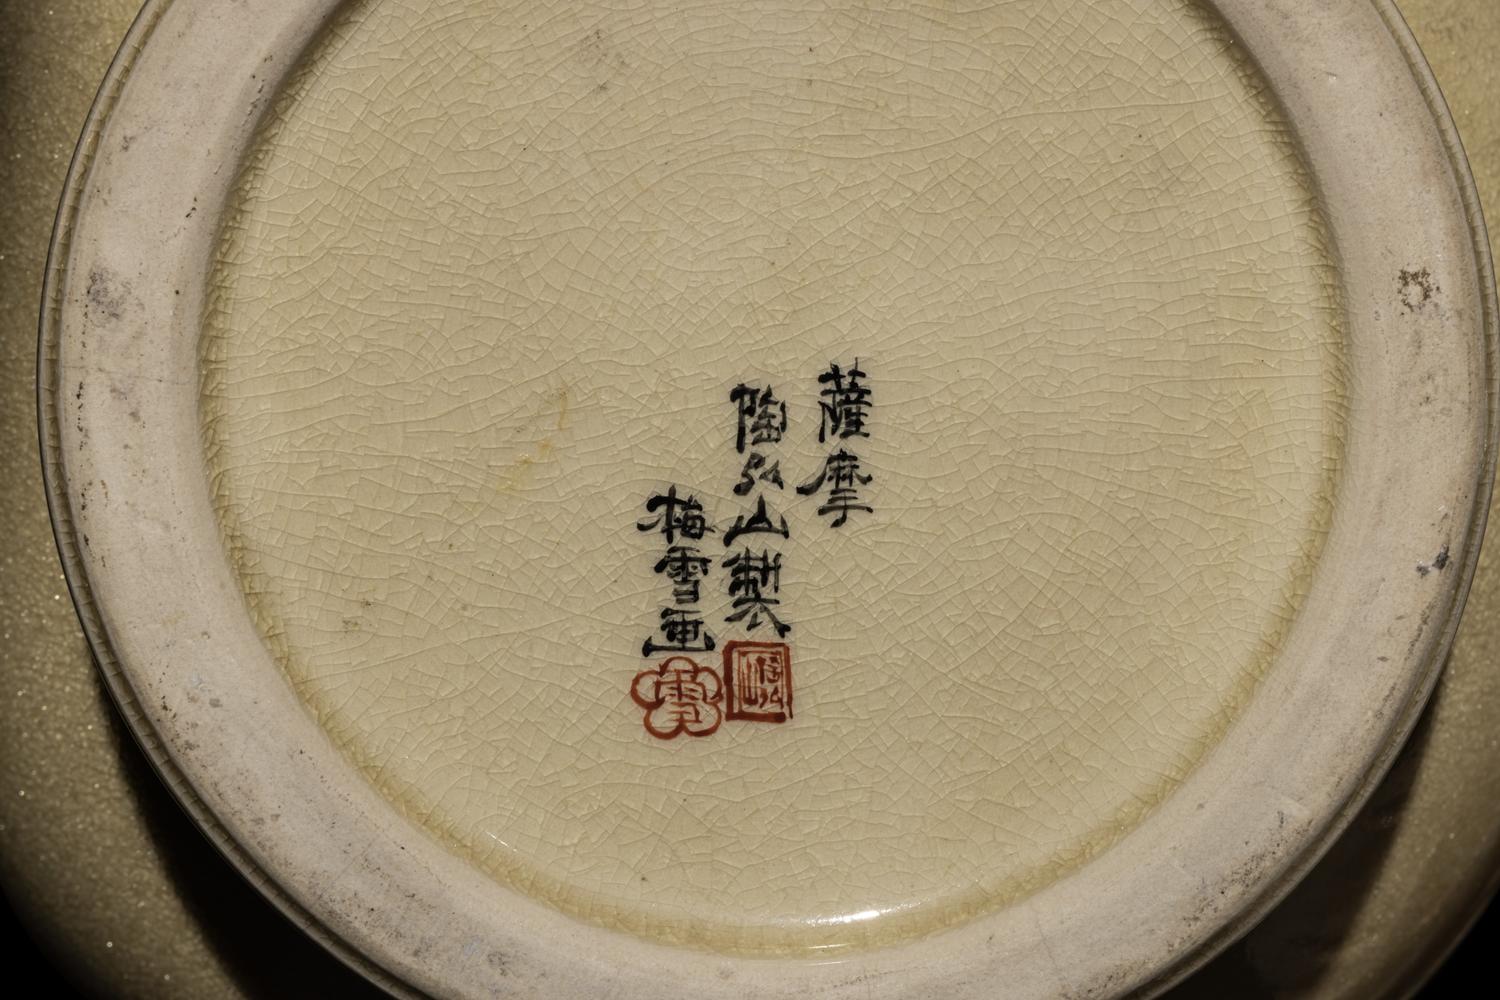 薩摩
陶弘山製
梅雪画
雪